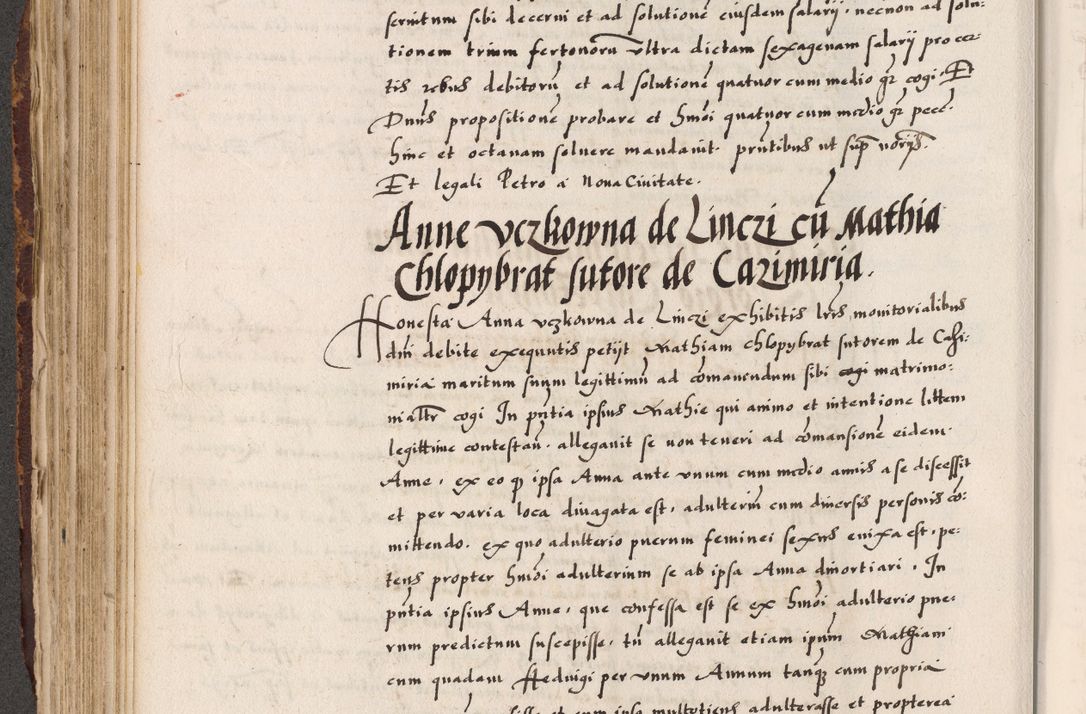 seruitum sibi decerni et ad solutionē eiusdem salarij, necnon ad solu:
tionem trium fertonorū vltra dictam sexagenam salarij pro cer:
tis rebus debitorū, et ad solutionē quatuor cum medio gr̄ cogi. Et
Dnūs propositionē probare et hmōi quatuor cum medio gr̄
hinc et octauam soluere mandauit. pn̄tibus ut sup̄
Et legali Petro a Noua Ciuitate.
Anne vczkowna de Linczi cū Mathia
Chlopybrat sutore de Cazimiria.
Honesta Anna vczkowna de Linczi exhibitis lr̄is monitorialibus
dn̄i debite exequutis petijt Mathiam Chlopybrat sutorem de Casi:
miria maritum suum legittimū ad cōmanendum sibi cogi matrimo:
nialtr̄ cogi In pn̄tia ipsius Mathie qui animo et intentione littem
legittime contestan̄. allegauit se non teneri ad cōmansionē eidem
Anne, ex eo q̄ ipsa Anna ante vnum cum medio annis a se discessit
et per varia loca diuagata est, adulteriū cum diuersis personis cō:
mittendo. ex quo adulterio puerum feminei sexus enixa est, pe:
tens propter hmōi adulterium se ab ipsa Anna diuortiari. In
pn̄tia ipsius Anne, que confessa est se ex hmōi adulterio pue:
rum predictum suscepisse, tn̄ allegauit etiam ipsum Mathiam
cum quadam Hedwigi per vnum Annum tanq̄ cum propria
et cum ipsa multotiens adulterasse et propterea